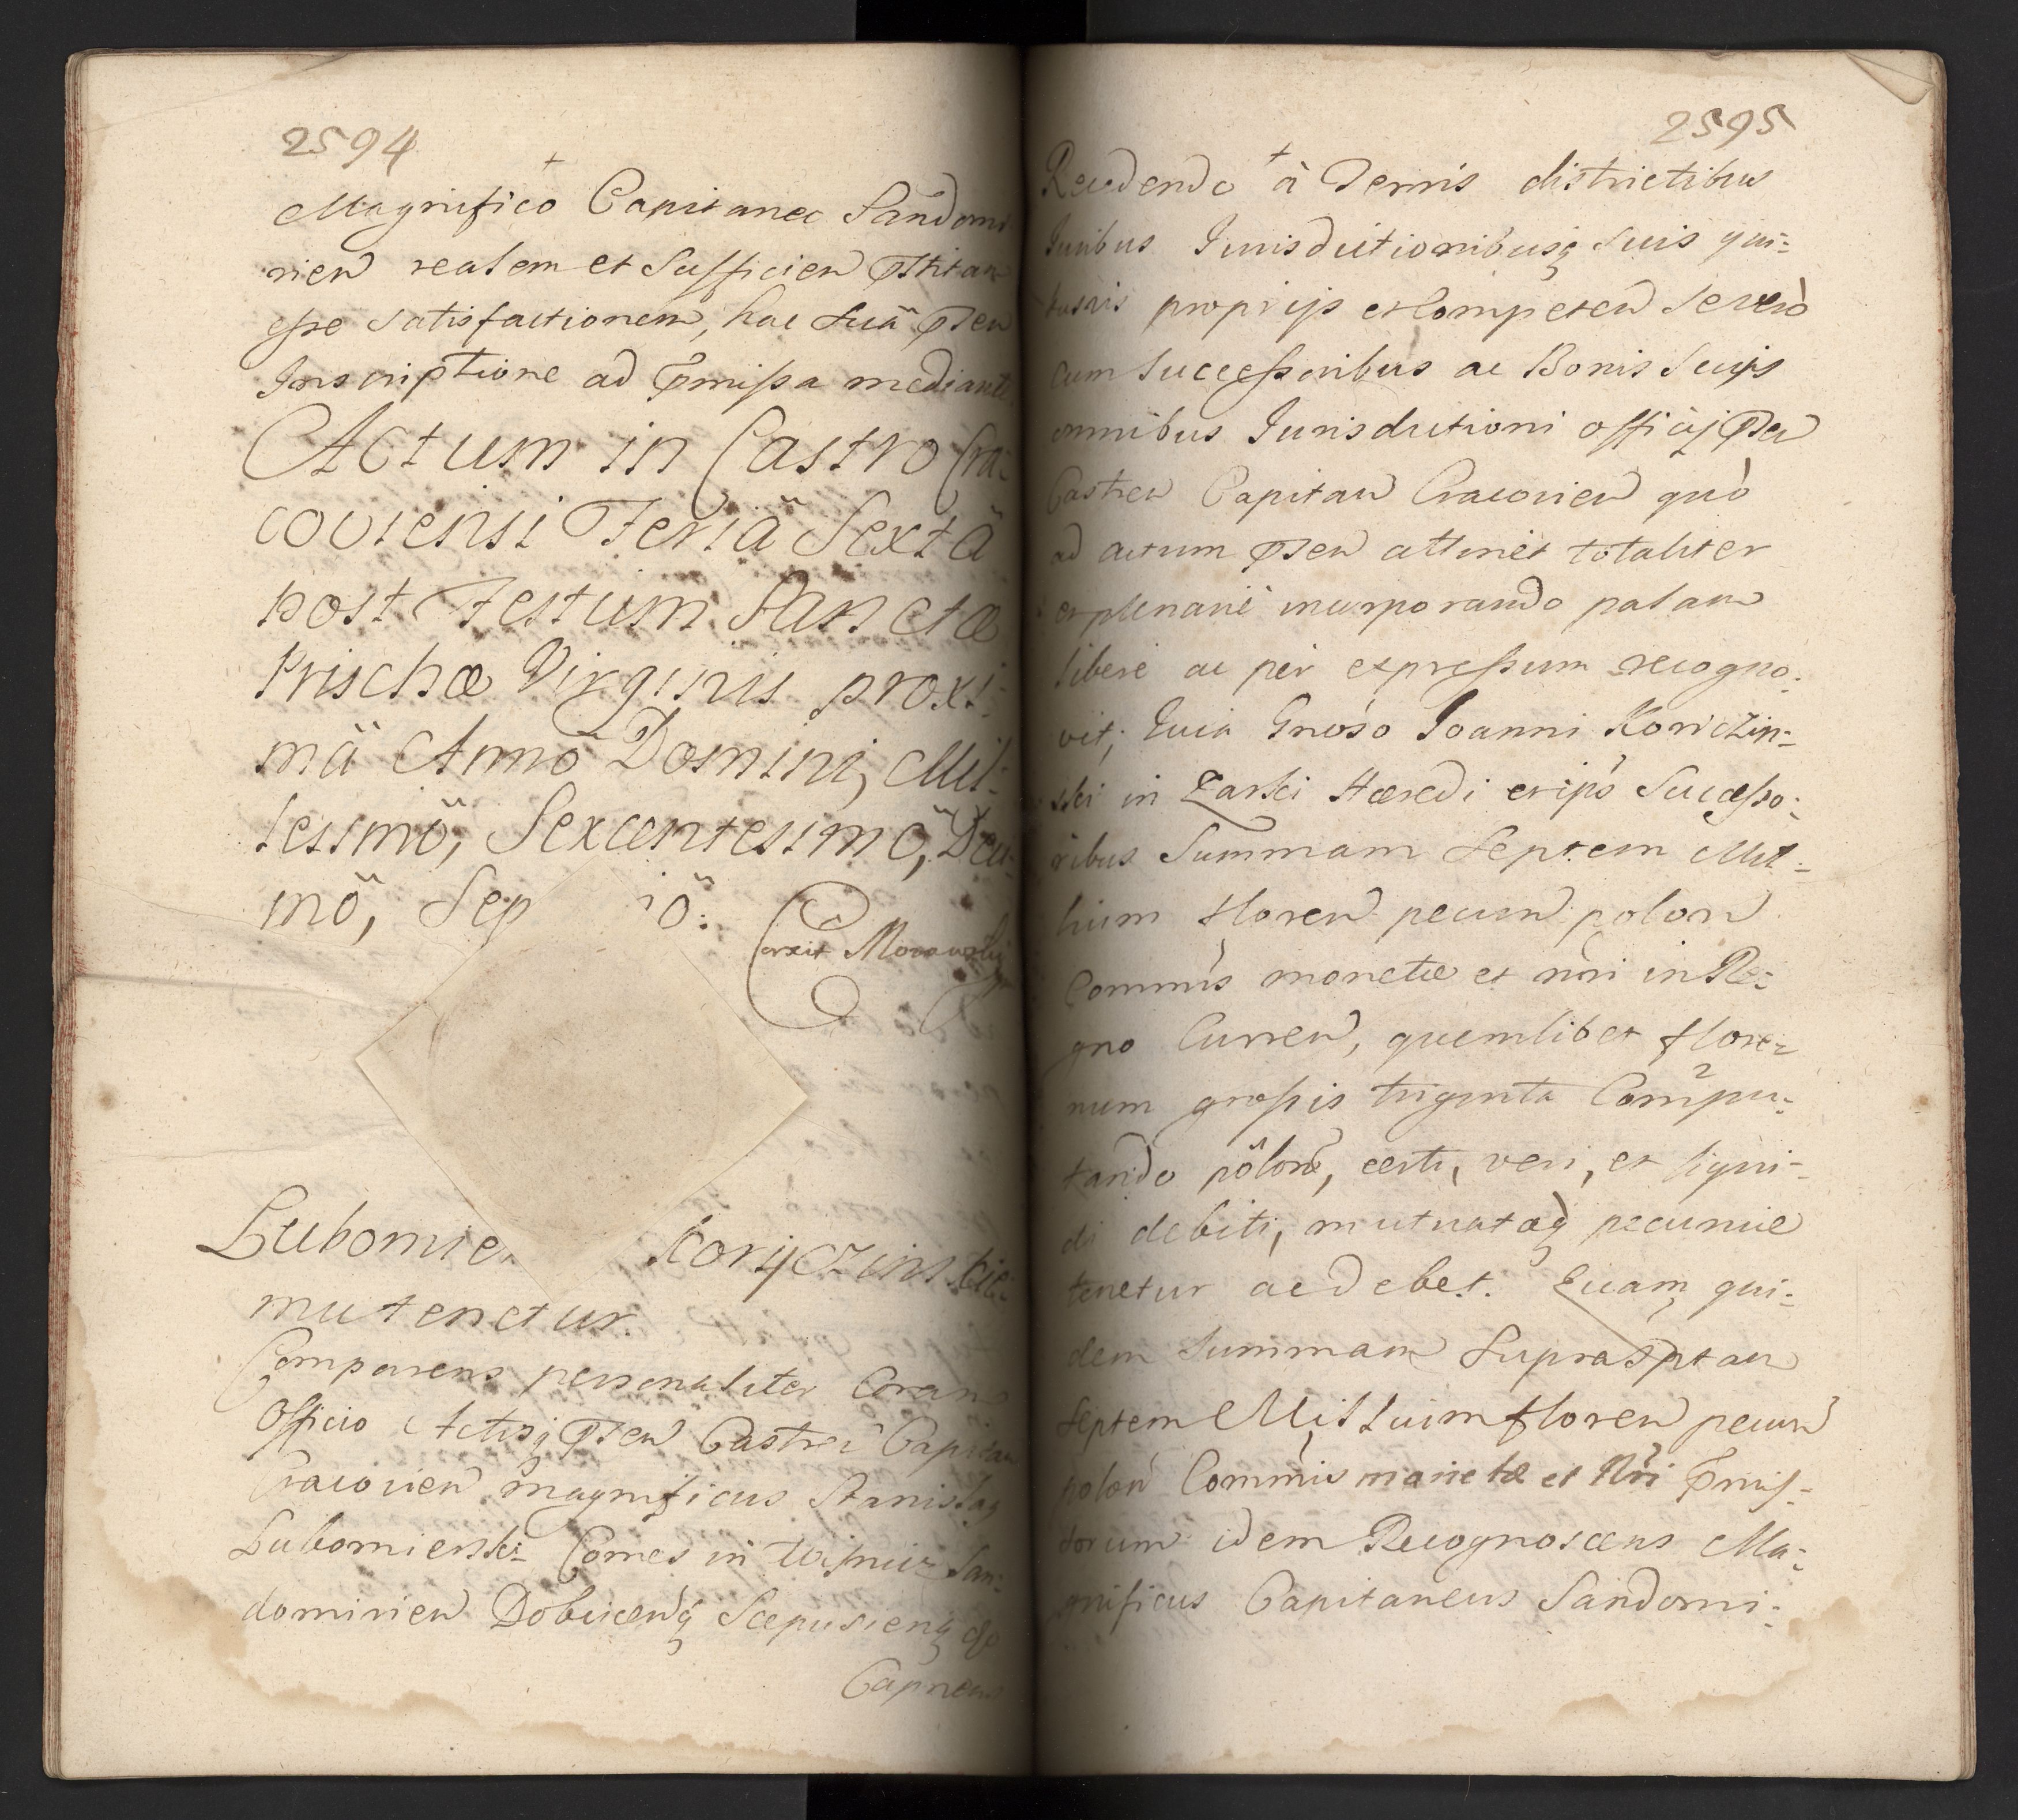 2594
Magnifico Capitaneo Sandomi
rien realem et Sufficien
esse satisfactionem, hac Suã
Inscriptione ad p̄missa mediante
Actum in Castro Cra-
coviensi Feriã Sextã
post Festum Sanctæ
Prischæ Virginis proxi-
mã Anno Domini, Mil-
lesimõ, Sexcentesimõ, Deci-
mõ, Sep iõ:
Corexit Morawsky
Lubomier Koryczinskie
mu tenetur.
Comparens personaliter Coram
Officio Actisq pn̄sen Castren Capitan
Cracovien Magnificus Stanislaq
Lubomierski Comes in Wisnicz San-
domirien Dobczenq Scepusienq &
Capneus
2595
Recedendo à Terris districtibus
Iuribus Iurisdictionibusq suis qui-
busvis proprijs et Competen se vero
cum Successoribus ac Bonis Suis
omnibus Iurisdictioni officij pn̄sen
Castren Capitan Cracovien quò
ad actum pn̄sen attinet totaliter
et plenariè incorporando palam
liberè ac per expressum recogno-
vit, Quia Gnoso Ioanni Koriczin-
ski in Zarki Hæredi et ips Successo-
ribus Summam Septem Mil-
lium floren pecun polon
Commis monetæ et nri in Re-
gno Curren, quemlibet flore-
num grossis triginta Compu-
tando polon, certi, veri, et liqui-
di debiti, mutuatæq pecuniæ
tenetur ac debet. Quam qui-
dem Summam Suprasptam
Septem Millium floren pecun
polon Commis monetæ et Nri p̄mis-
sorum idem Recognoscens Ma-
gnificus Capitaneus Sandomi-